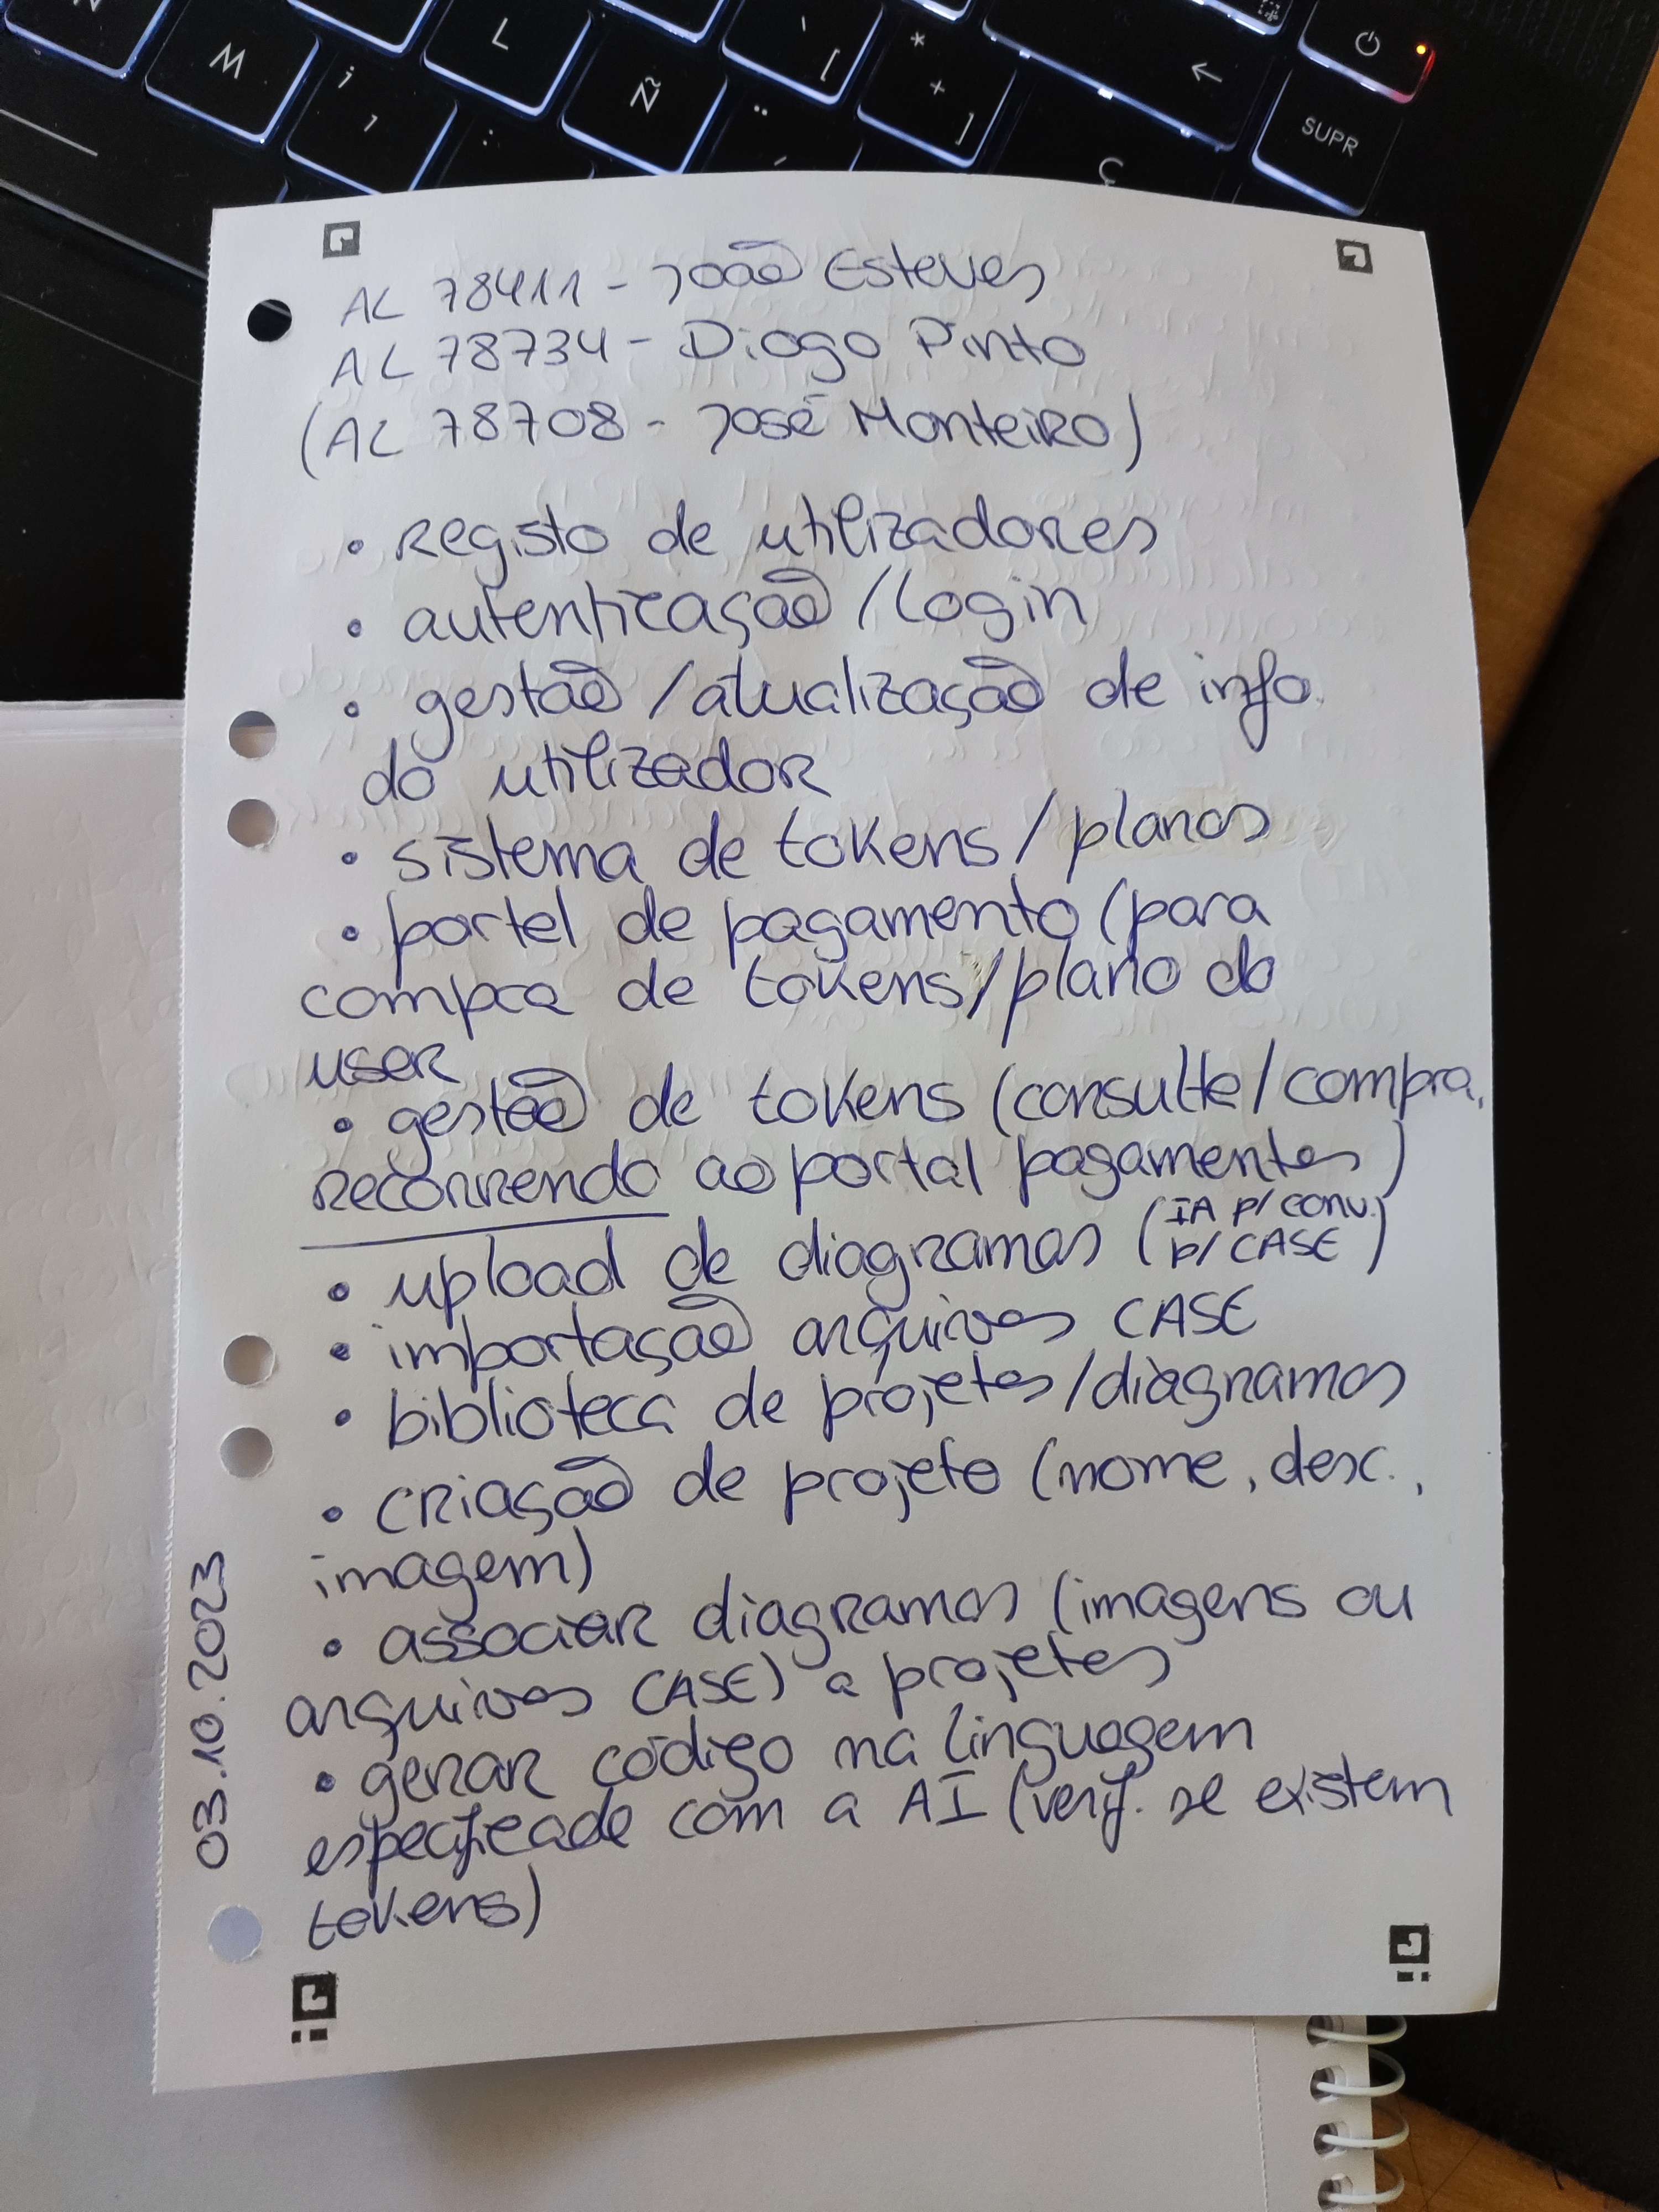 M
L
Ñ
SUPR
Ç
AL 78411 - João Esteves
AL 78734 - Diogo Pinto
(AL 78708 - José Monteiro)
• registo de utilizadores
• autenticação / Login
• gestão / atualização de info.
do utilizador
• sistema de tokens / planos
• portal de pagamento (para
compra de tokens / plano do
user
• gestão de tokens (consulta / compra,
recorrendo ao portal pagamentos)
• upload de diagramas (IA p/ conv.
p/ CASE)
• importação arquivos CASE
• biblioteca de projetos / diagramas
• criação de projeto (nome, desc.,
imagem)
• associar diagramas (imagens ou
arquivos CASE) a projetos
• gerar código na linguagem
especificada com a AI (verif. se existem
tokens)
03.10.2023